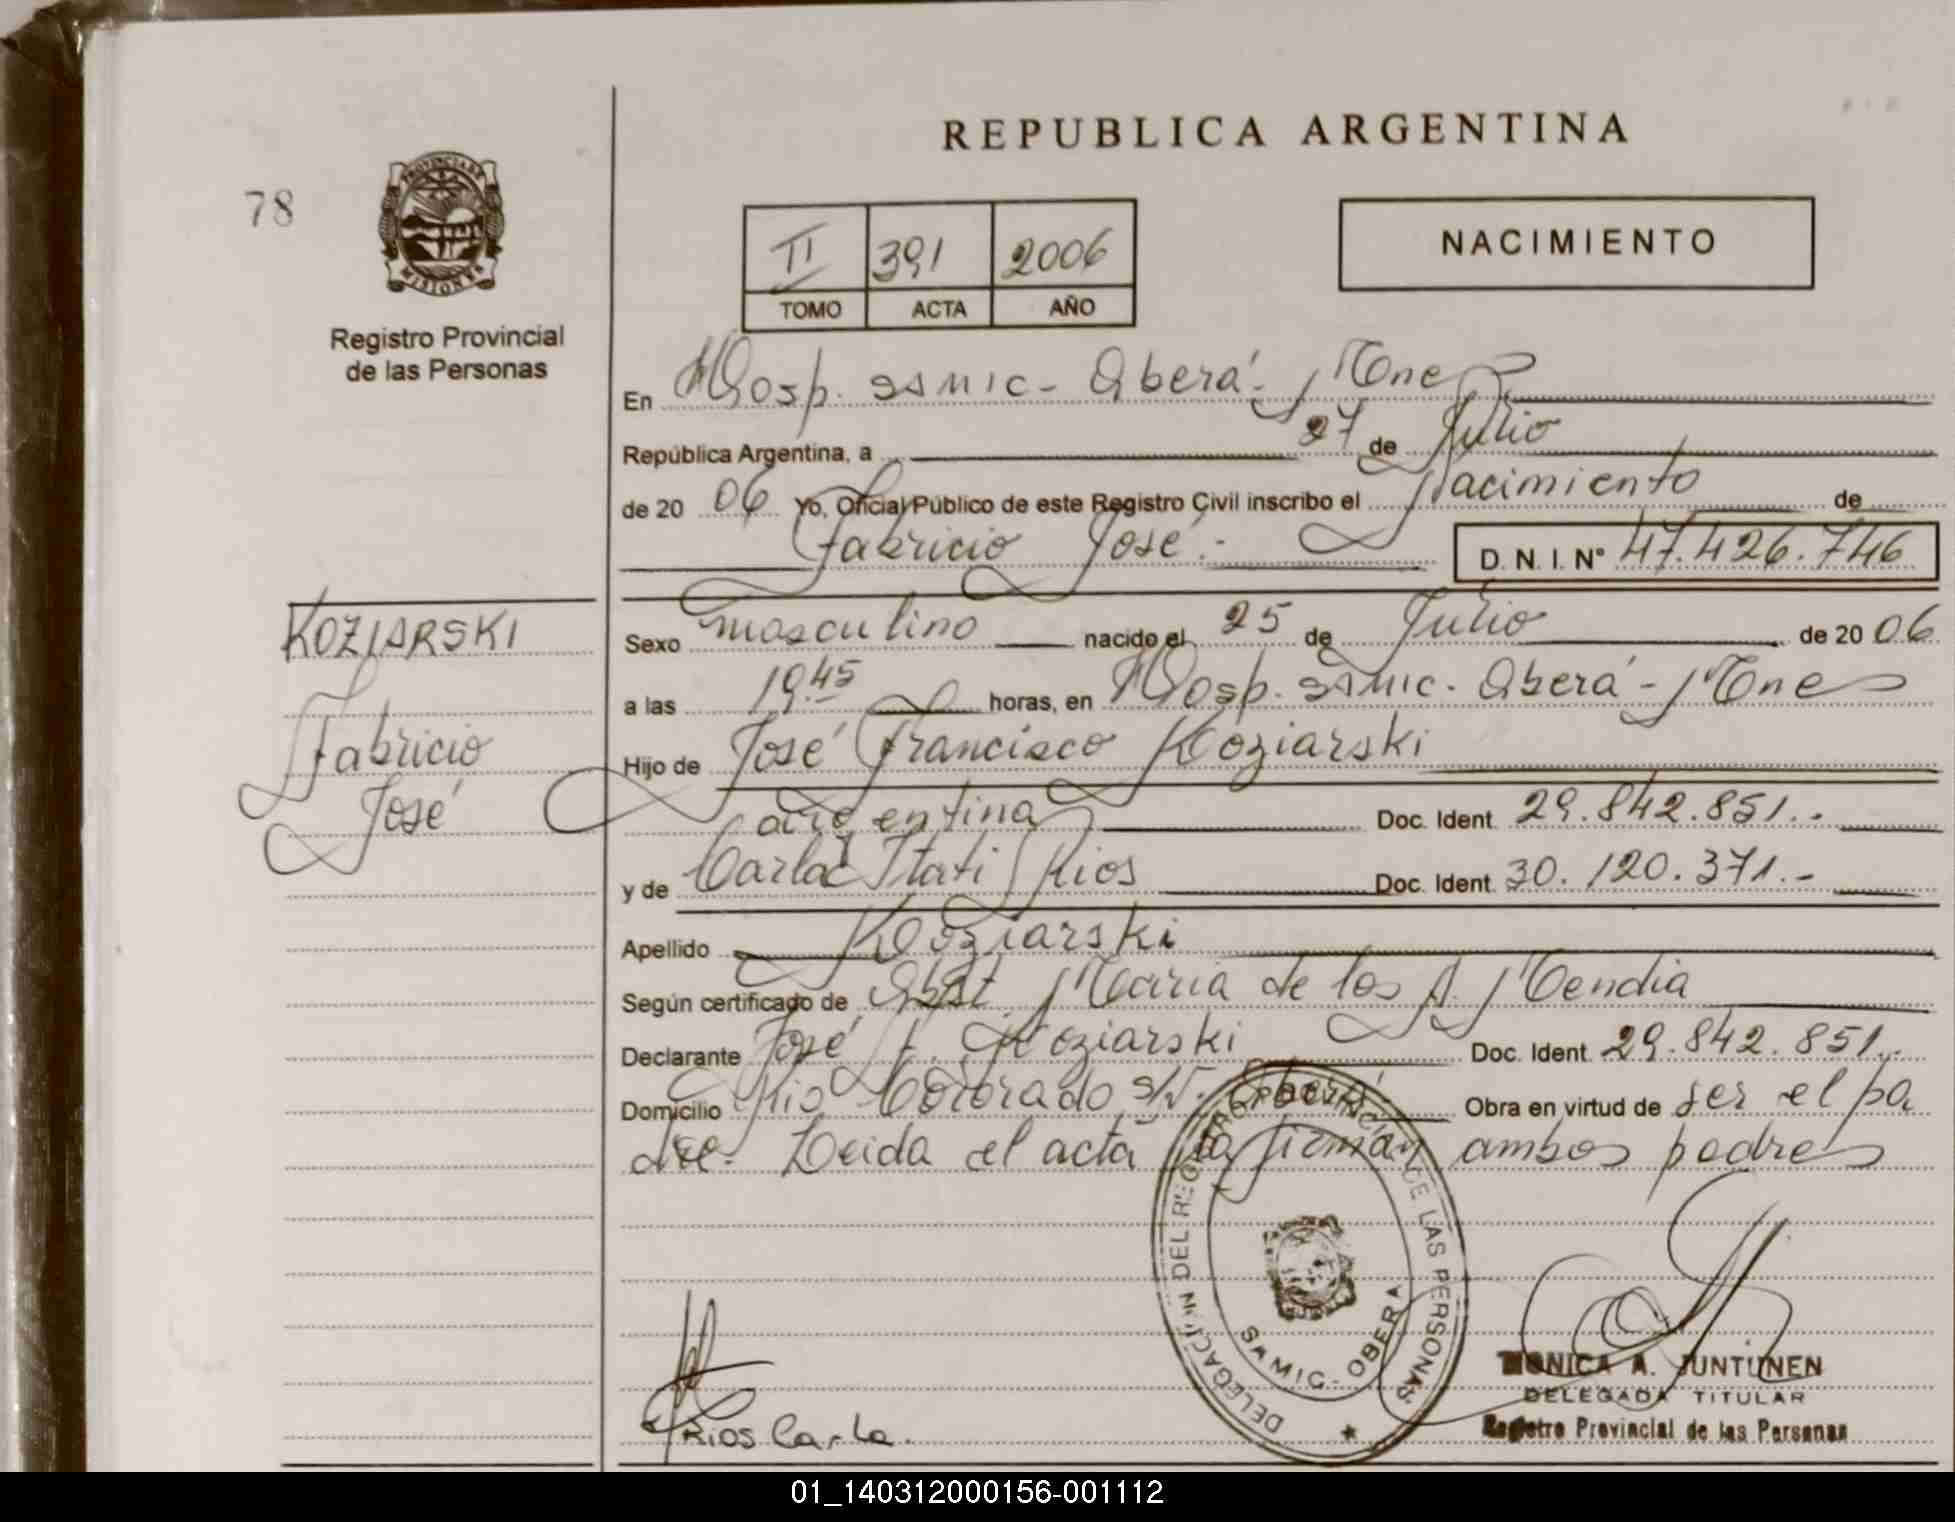 REPUBLICA ARGENTINA
78
PROVINCIA DE
MISIONES
Registro Provincial
de las Personas
II 391 2006
TOMO ACTA AÑO
NACIMIENTO
En Hosp. SAMIC - Oberá - Mnes
República Argentina, a 27 de Julio
de 20 06 Yo, Oficial Público de este Registro Civil inscribo el Nacimiento de
Fabricio José.- D. N. I. N° 47.426.746
KOZIARSKI
Fabricio
José
Sexo masculino nacido el 25 de Julio de 20 06
a las 19.45 horas, en Hosp. SAMIC. Oberá - Mnes
Hijo de José Francisco Koziarski
argentina Doc. Ident. 29.842.851.-
y de Carla Itati Rios Doc. Ident. 30.120.371.-
Apellido Koziarski
Según certificado de Obst. Maria de los A. Mendia
Declarante José F. Koziarski Doc. Ident. 29.842.851.-
Domicilio Rio Colorado s/N. Oberá Obra en virtud de ser el pa
dre. Leida el acta la firman ambos padres
DELEGACION DEL REGISTRO PROVINCIAL DE LAS PERSONAS
SAMIC - OBERA
Rios Carla.
MONICA A. JUNTUNEN
DELEGADA TITULAR
Registro Provincial de las Personas
01_140312000156-001112